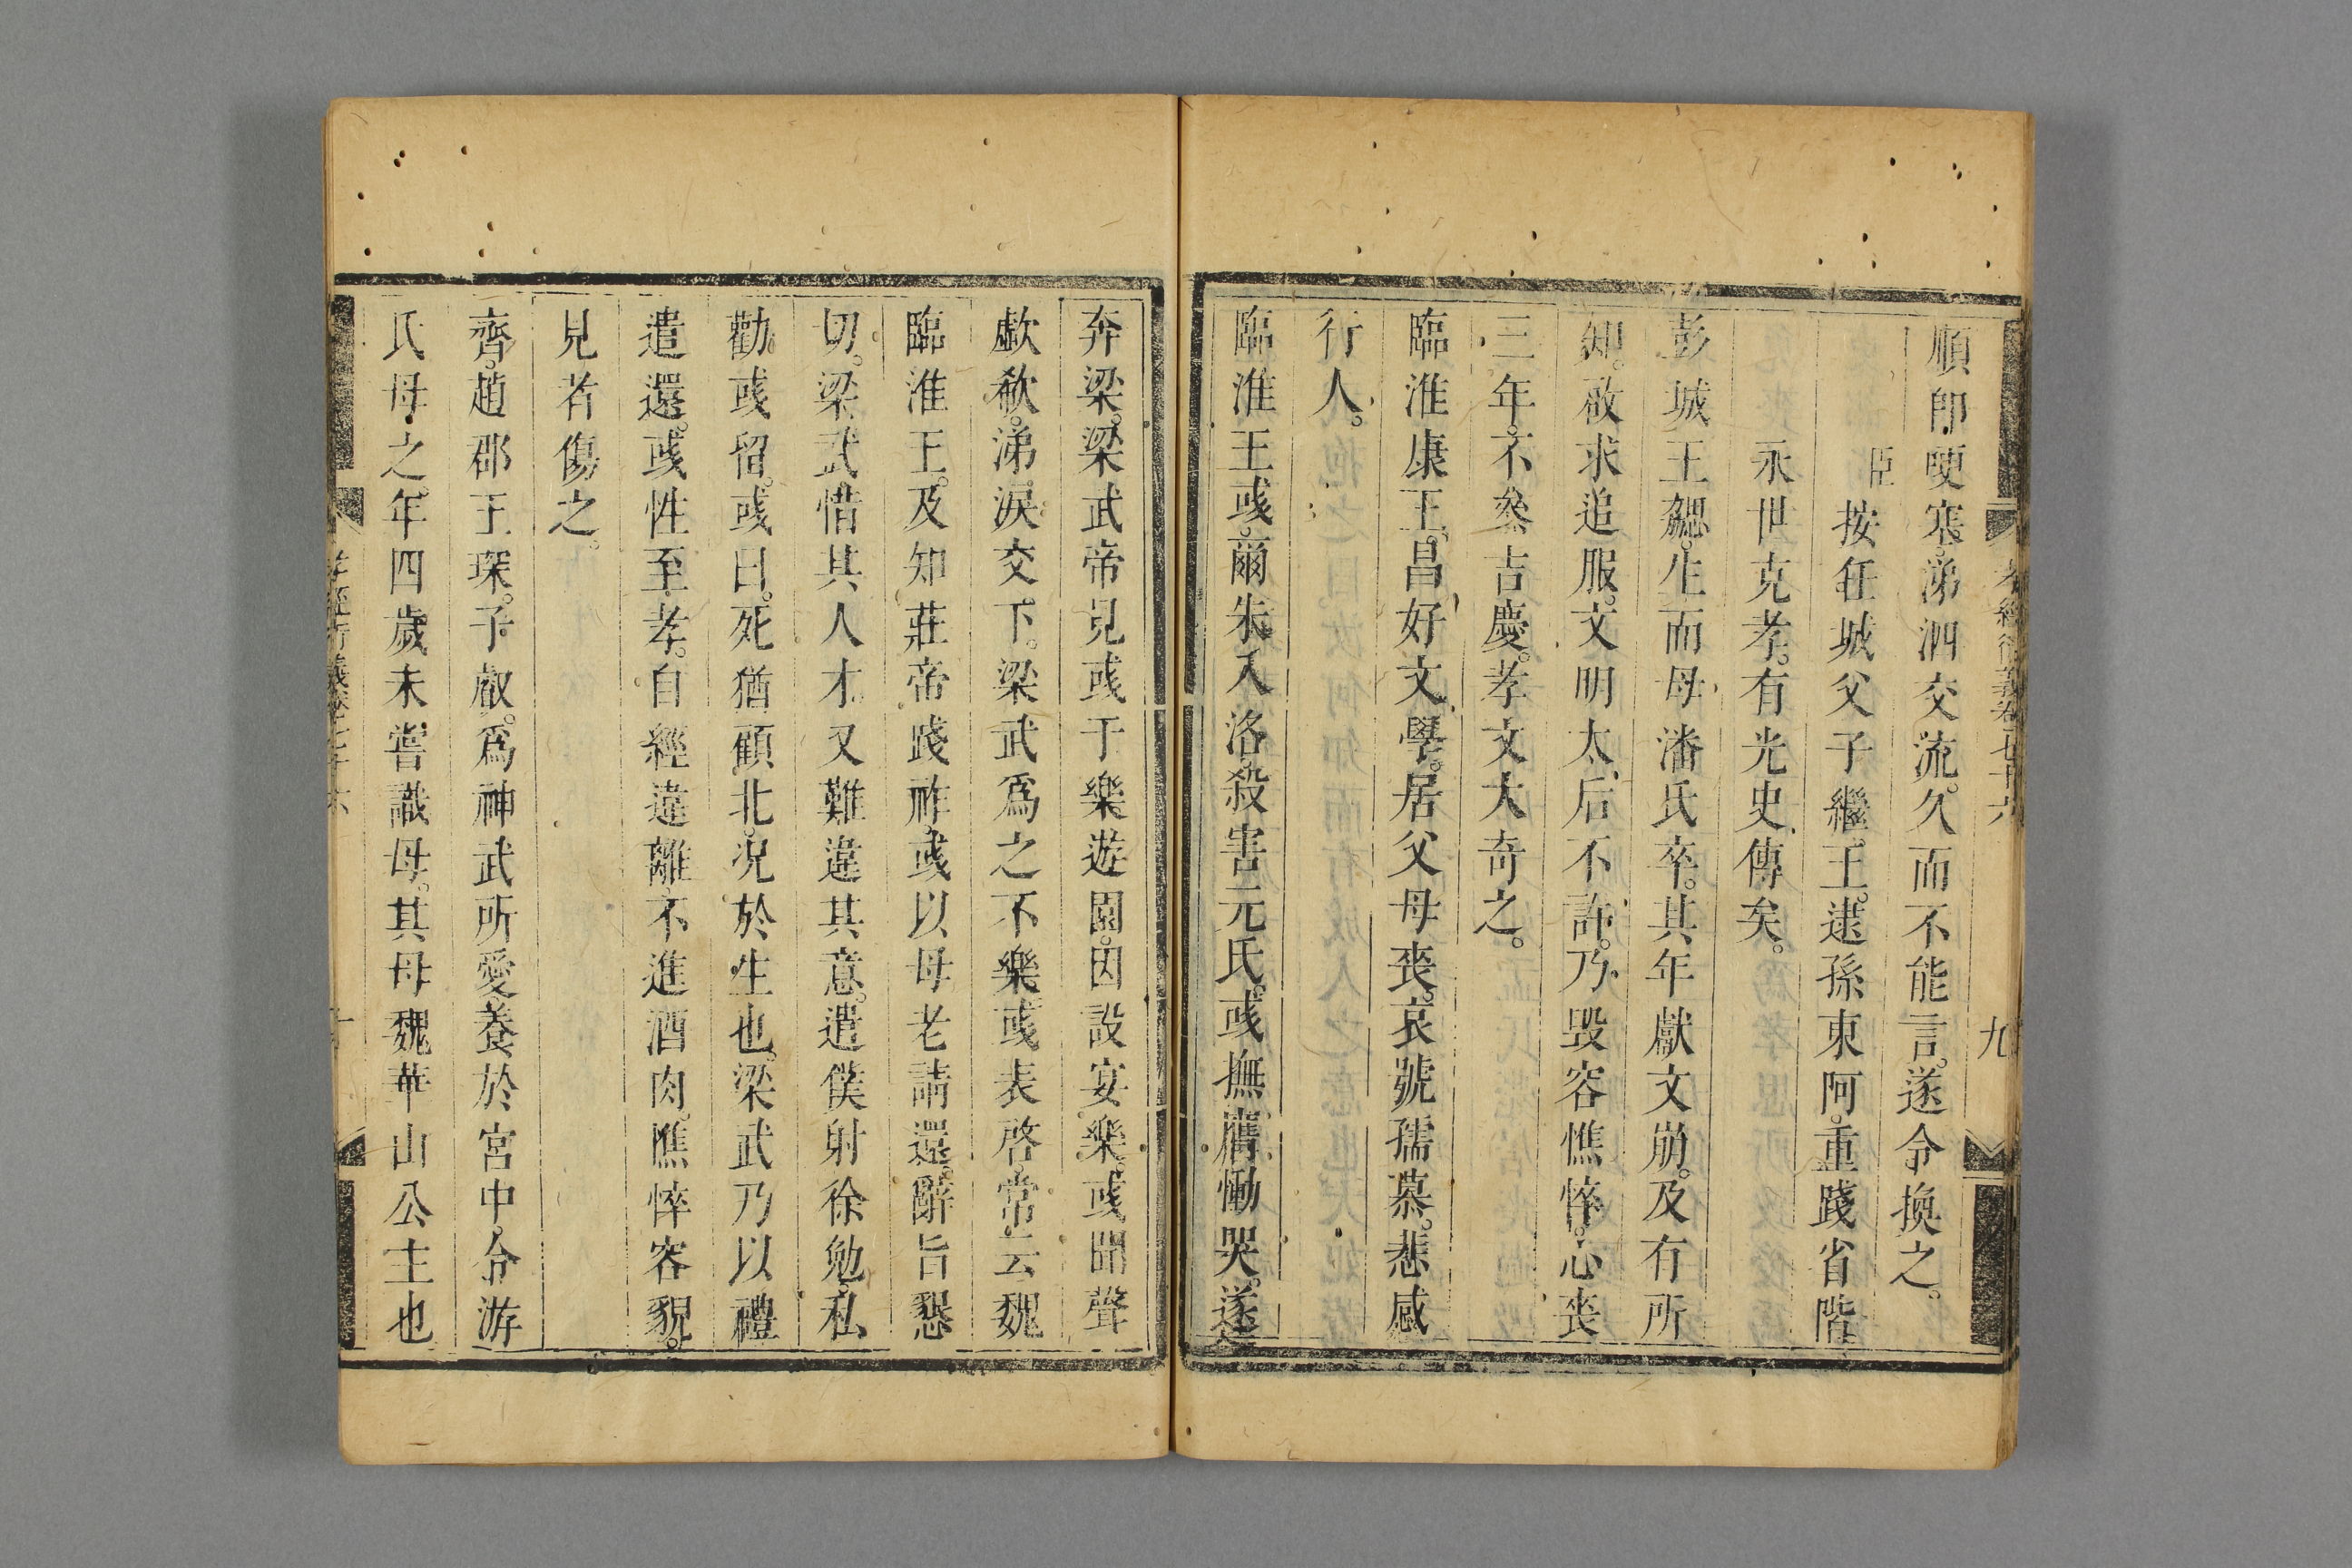 孝經衍義卷七十六　九
順即哽塞。涕泗交流。久而不能言。遂令換之。
臣按任城父子繼王。逮孫東阿。重踐省階
永世克孝。有光史傳矣。
彭城王勰。生而母潘氏卒。其年獻文崩。及有所
知。啟求追服。文明太后不許。乃毀容憔悴。心喪
三年。不叅吉慶。孝文大奇之。
臨淮康王。昌好文學。居父母喪。哀號孺慕。悲感
行人。
臨淮王彧。爾朱入洛。殺害元氏。彧撫膺慟哭。遂
奔梁。梁武帝見彧于樂遊園。因設宴樂。彧聞聲
歔欷。涕淚交下。梁武爲之不樂。彧表啓。常云魏
臨淮王。及知莊帝踐祚。彧以母老請還。辭旨懇
切。梁武惜其人才。又難違其意。遣僕射徐勉。私
勸彧留。彧曰。死猶願北。況於生也。梁武乃以禮
遣還。彧性至孝。自經違離。不進酒肉。憔悴容貌。
見者傷之。
齊。趙郡王琛。子叡。爲神武所愛。養於宮中。令游
氏母之。年四歲。未嘗識母。其母魏華山公主也
孝經衍義卷七十六　十